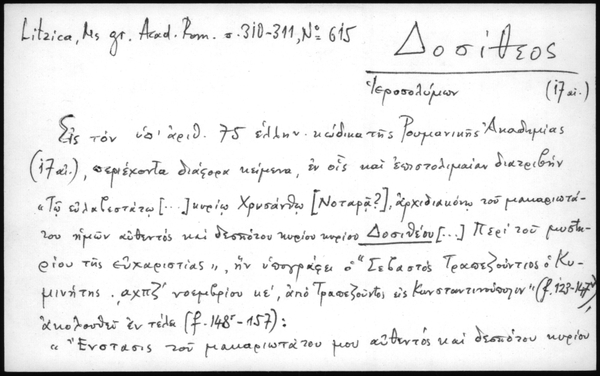 Litzica, Ms gr. Acad. Rom. σ. 310-311, Nº 615
Δοσίθεος
Ἱεροσολύμων (17 αἰ.)
Εἰς τὸν ὑπ' ἀριθ. 75 ἑλλην. κώδικα τῆς Ρουμανικῆς Ἀκαδημίας
(17 αἰ.), περιέχοντα διάφορα κείμενα, ἐν οἷς καὶ ἐπιστολιμαίαν διατριβὴν
«Τῷ εὐλαβεστάτῳ [...] κυρίῳ Χρυσάνθῳ [Νοταρᾷ?], ἀρχιδιακόνῳ τοῦ μακαριωτά-
του ἡμῶν αὐθεντὸς καὶ δεσπότου κυρίου κυρίου Δοσιθέου [...] Περὶ τοῦ μυστη-
ρίου τῆς εὐχαριστίας», ἣν ὑπογράφει ὁ "Σεβαστὸς Τραπεζούντιος ὁ Κυ-
μινήτης. ͵αχπζ' νοεμβρίου κε', ἀπὸ Τραπεζοῦντος εἰς Κωνσταντινούπολιν" (f. 123-147ʳ)
ἀκολουθεῖ ἐν τέλει (f. 148ʳ-157):
« Ἔνστασις τοῦ μακαριωτάτου μου αὐθεντὸς καὶ δεσπότου κυρίου